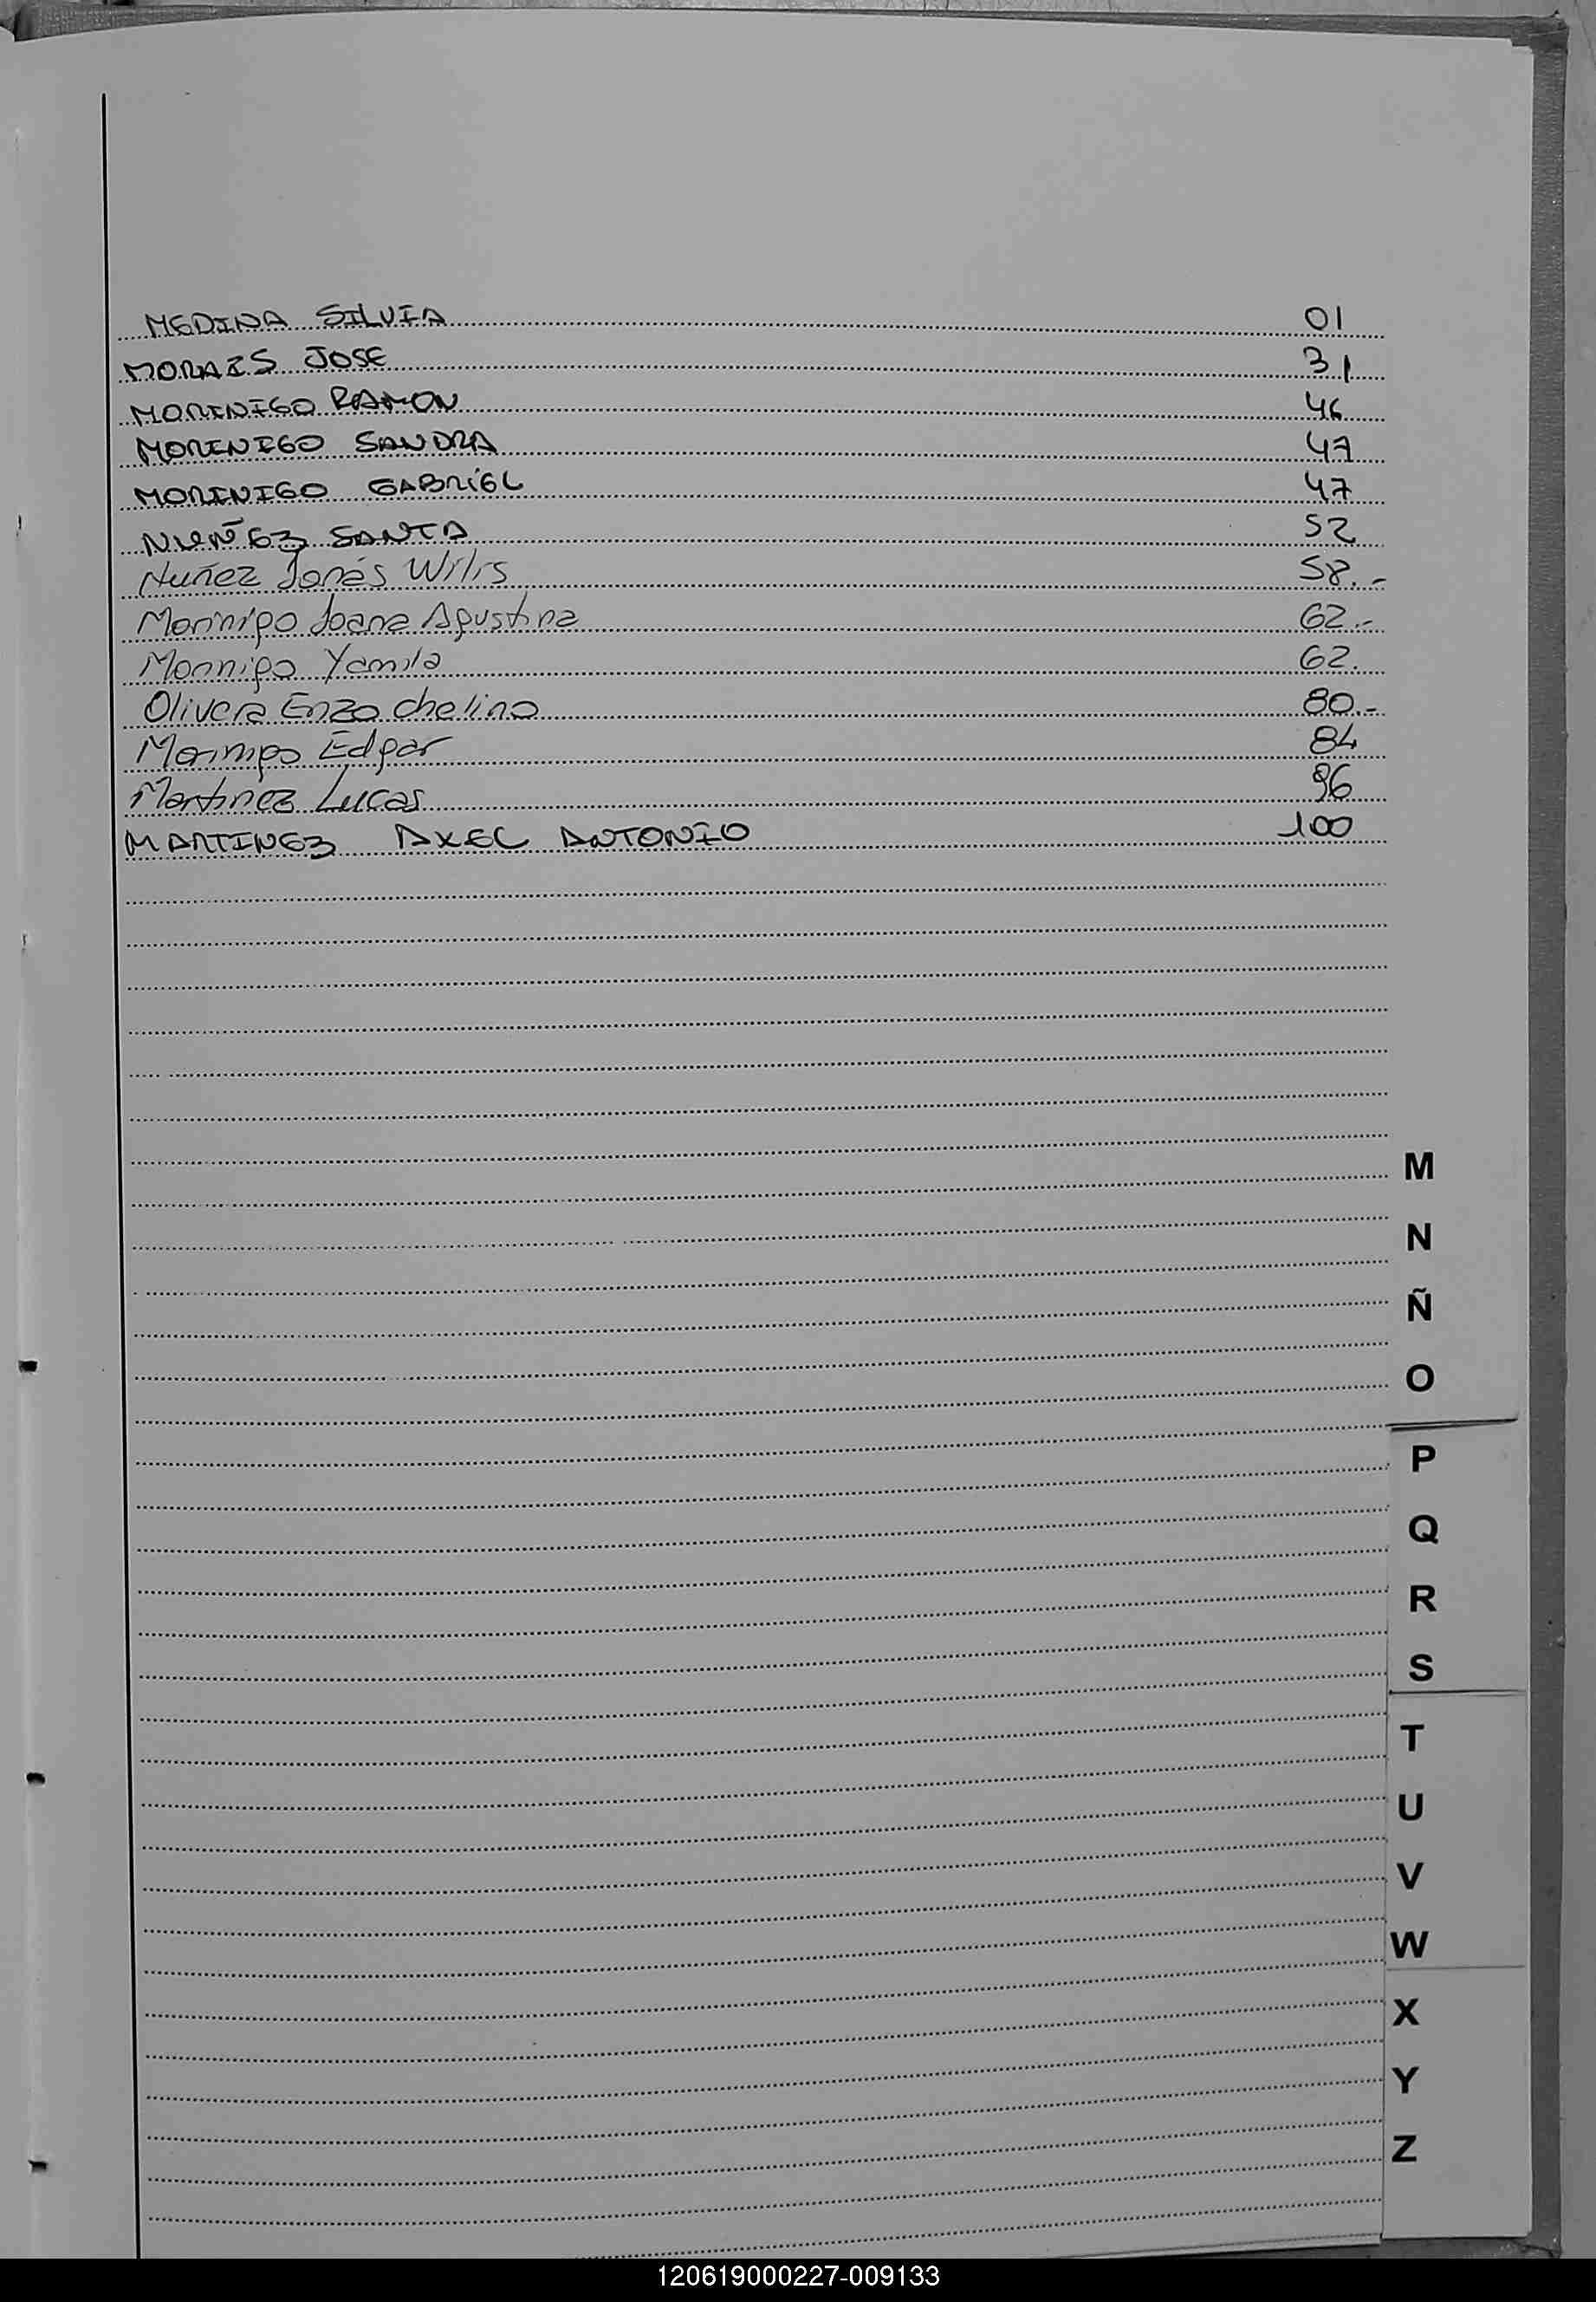 MEDINA SILVIA 01
MORAES JOSE 31
MORINIGO RAMON 46
MORINIGO SANDRA 47
MORINIGO GABRIEL 47
NUÑEZ SANTA 52
Nuñez Jonás 58.-
Morinigo Joana Agustina 62.-
Morinigo Yamila 62.
Olivera Enzo Chelino 80.-
Morinigo Edgar 84
Martinez Lucas 96
MARTINEZ AXEL ANTONIO 100
M
N
Ñ
O
P
Q
R
S
T
U
V
W
X
Y
Z
120619000227-009133